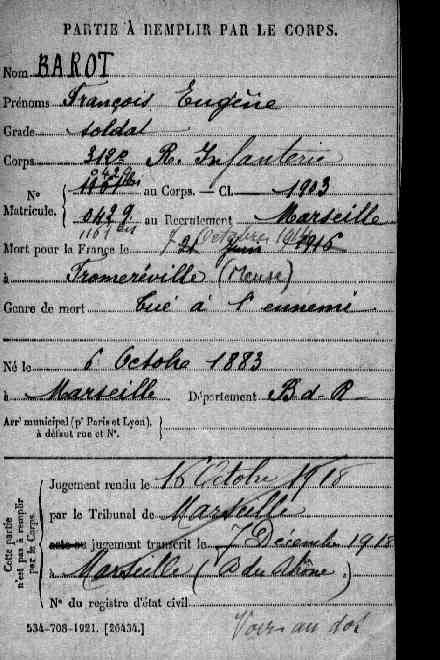 PARTIE À REMPLIR PAR LE CORPS.
Nom BAROT
Prénoms François Eugène
Grade soldat
Corps 312e R. Infanterie
N° Matricule. { au Corps. — Cl. 1903
0429 au Recrutement Marseille
Mort pour la France le 21 Juin 1916
7 Octobre
à Fromeréville (Meuse)
Genre de mort Tué à l'ennemi
Né le 6 Octobre 1883
à Marseille Département B d R
Arrt municipal (pr Paris et Lyon), à défaut rue et N°. }
Cette partie n'est pas à remplir par le Corps. {
Jugement rendu le 16 Octobre 1918
par le Tribunal de Marseille
acte ou jugement transcrit le 7 Décembre 1918
à Marseille (B du Rhône)
N° du registre d'état civil
534-708-1921. [26434.]
Voir au dos